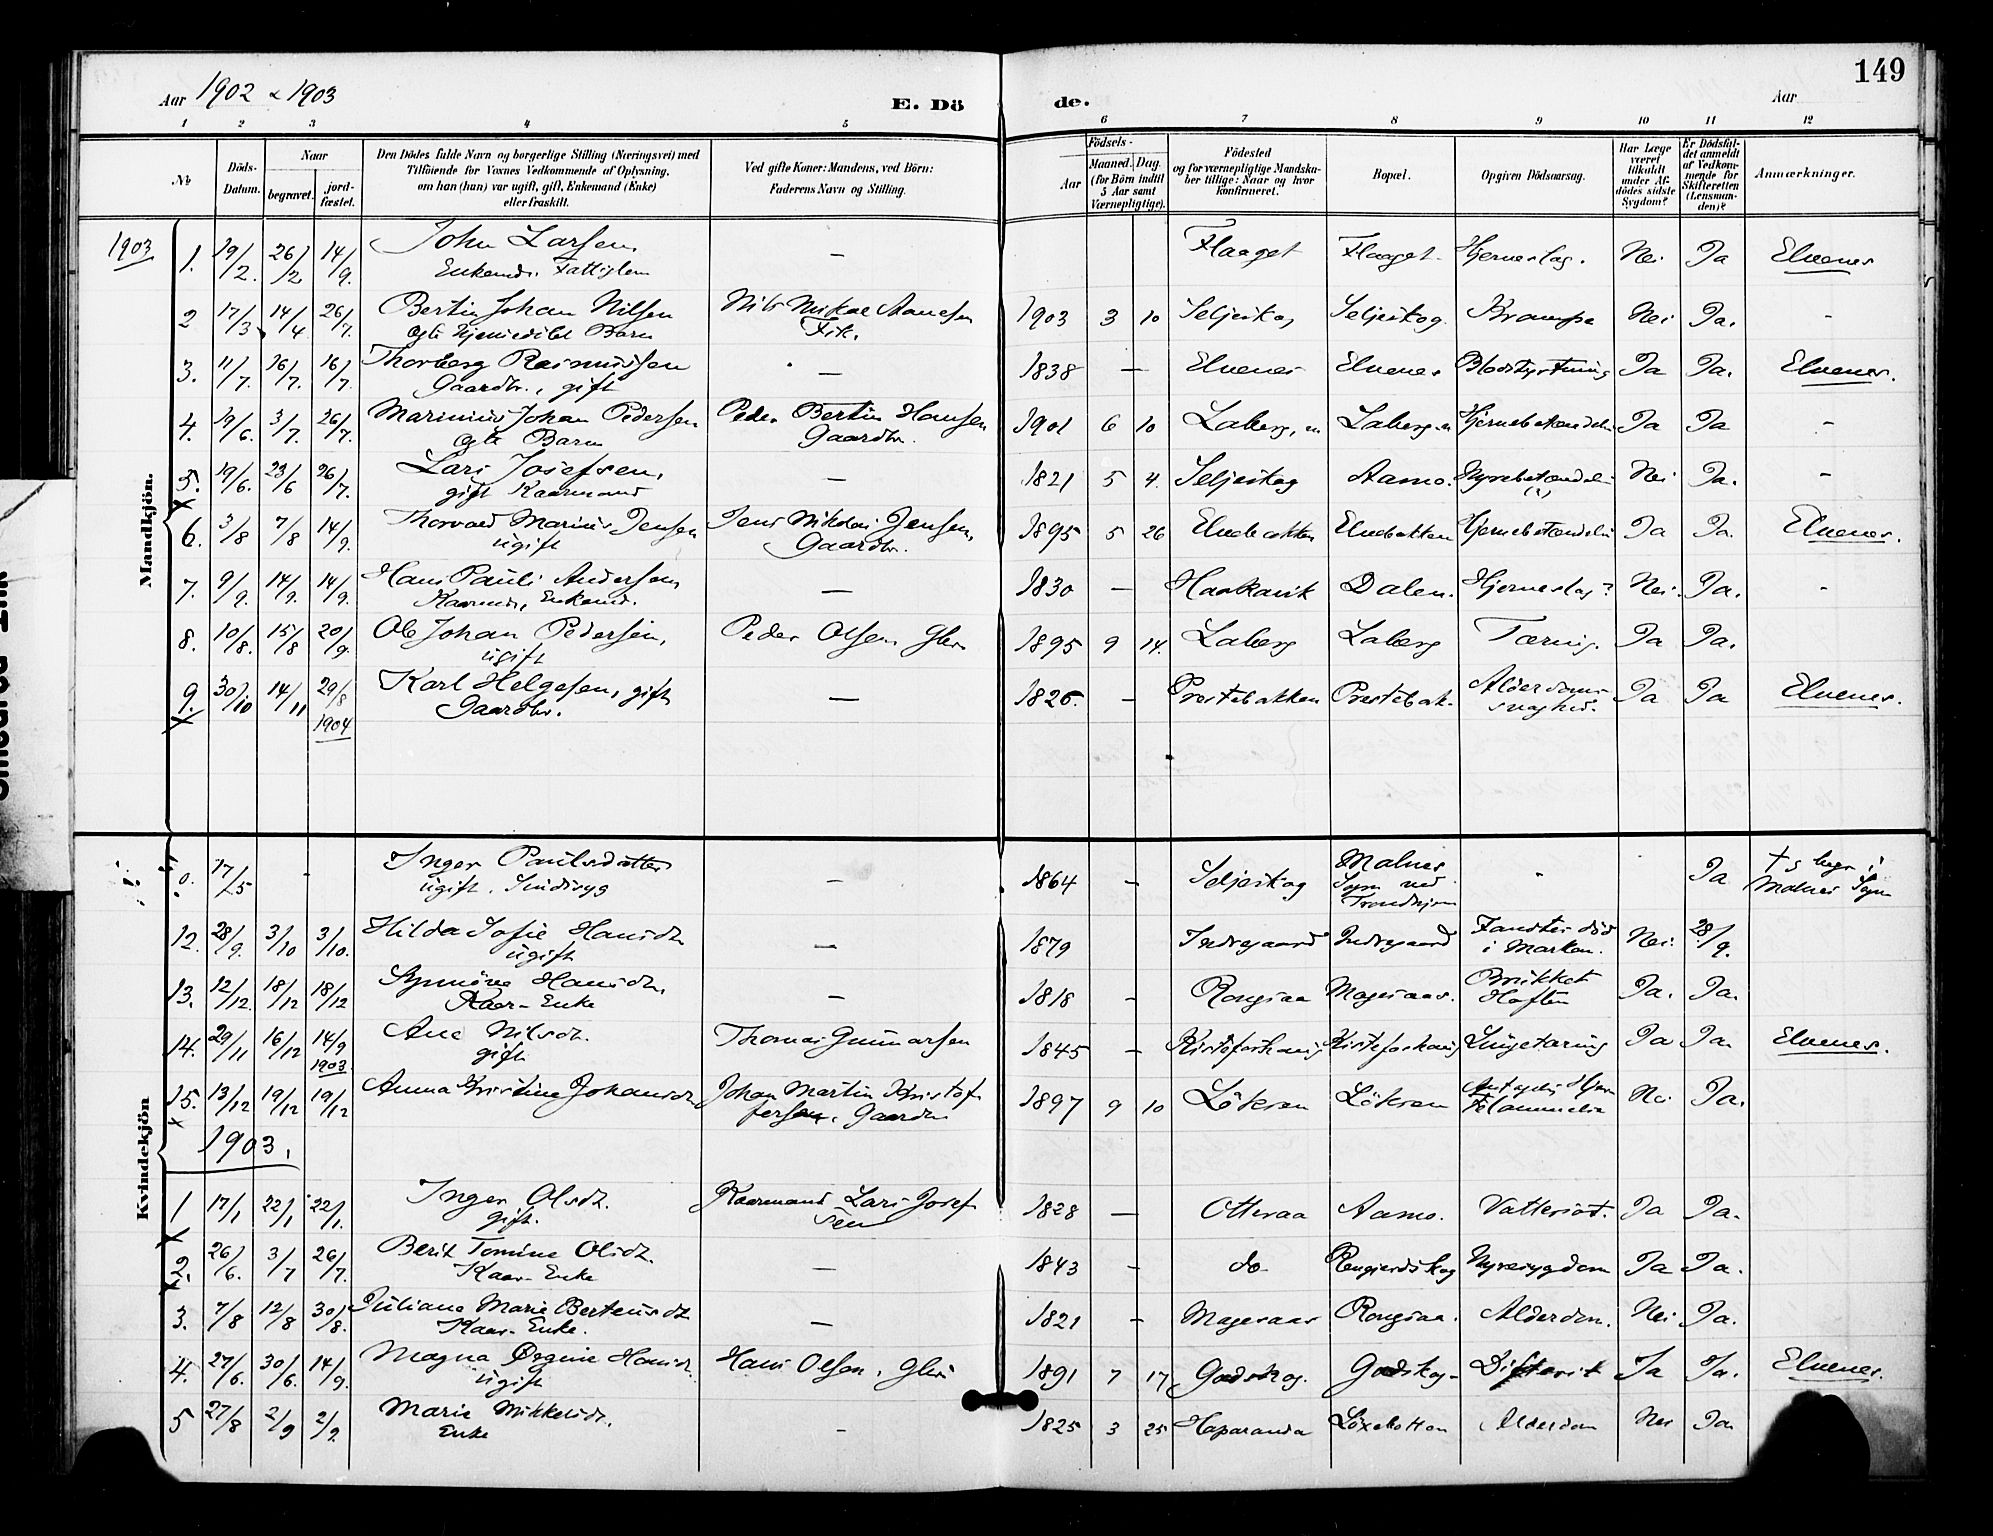 149
Aar 1902 & 1903
E. Döde.
Aar
1 2 3 4 5 6 7 8 9 10 11 12
No
Döds-Datum.
Naar
begravet.
jord-fæstet.
Den Dödes fulde Navn og borgerlige Stilling (Næringsvei) med
Tilföiende for Voxnes Vedkommende af Oplysning,
om han (hun) var ugift, gift, Enkemand (Enke)
eller fraskilt.
Ved gifte Koner: Mandens, ved Börn:
Faderens Navn og Stilling.
Födsels-
Aar
Maaned. Dag.
(for Börn indtil
5 Aar samt
Værnepligtige).
Födested
og for værnepligtige Mandska-
ber tillige: Naar og hvor
konfirmeret.
Bopæl.
Opgiven Dödsaarsag.
Har Læge
været
tilkaldt
under Af-
dödes sidste
Sygdom?
Er Dödsfal-
det anmeldt
af Vedkom-
mende for
Skifteretten
(Lensman-
den)?
Anmærkninger.
Mandkjön.
1903
1. 19/2. 26/2 14/9. John Larsen, — Flaaget Flaaget Hjerneslag. Nei Ja Elvenes
Enkemd. Fattiglem
2 17/3 14/4 26/7. Bertin Johan Nilsen Nils Mikal Aanesen 1903 3 10 Seljeskog Seljeskog Krampe Nei Ja. -
ægte hjemmedøbt Barn Fisk.
3. 11/7. 16/7. 16/7. Thorberg Rasmussen — 1838 — Elvenes Elvenes Blodstyrtning Ja Ja. Elvenes.
Gaardbr., gift
4. 19/6. 3/7. 26/7. Marinius Johan Pedersen Peder Bertin Hansen 1901 6 10 Laberg, Laberg Hjernebetændelse Ja Ja -
ægte Barn Gaardbr.
5. 19/6. 23/6 26/7. Lars Josefsen, — 1821 5 4. Seljeskog Aamo. Nyrebetændelse Nei Ja. -
gift Kaarmand
6. 3/8 7/8 14/9. Thorvald Marius Jensen Jens Nikolai Jensen, 1895 5 26 Elvebakken Elvebakken Hjernebetændelse Ja Ja. Elvenes.
ugift Gaardbr.
7. 9/9. 14/9. 14/9. Hans Pauli Andersen — 1830 — Haakavik Dalen. Hjerneslag? Nei. Ja. -
Kaarmd., Enkemd.
8. 10/8. 15/8 20/9. Ole Johan Pedersen, Peder Olsen Gbr. 1895 9 14. Laberg Laberg Tæring. Ja Ja.
ugift
9. 30/10 14/11 29/8 1904 Karl Helgesen, gift — 1826. - Prestebakken Prestebak. Alderdoms- Ja Ja Elvenes.
Gaardbr. svaghed.
Kvindekjön
17/5 - Inger Paulsdatter — 1864 - Seljeskog Malnes Ja
ugift. Sindssyg Sogn ved
12. 28/9. 3/10 3/10. Hilda Sofie Hansdt. — 1879 Indregaard Indregaard Fandtes død Nei. 28/9.
ugift i Marken.
13. 12/12. 18/12 18/12 Synnöve Hansdt. — 1818 - Rongsaa Magesaas. Brukket Ja. Ja.
Kaar-Enke Hoften
14. 29/11 16/12 14/9 1903. Ane Nilsdt. Thomas Gunnarsen 1845 — Kristofershaug Kristofershaug Lungetæring Ja Ja. Elvenes.
gift
15. 13/12 19/12 19/12 Anna Kristine Johansdt. Johan Martin Kristof- 1897 9 10 Löksen Löksen Nei Ja.
fersen, Gaardbr.
1903.
1 17/1 22/1 22/1. Inger Olsdt. Kaarmand Lars Josef- 1828 — Otteraa Aamo. Vattersot. Ja Ja.
gift. sen
2. 26/6. 3/7 26/7. Berit Tomine Olsdt. — 1843 - do Rengjerdskog Nyresygdom Ja Ja.
Kaar-Enke
3. 7/8 12/8 30/8. Juliana Marie Berteusdt. — 1821 - Magesaas Rongsaa. Alderdom. Nei Ja.
Kaar-Enke.
4. 27/6. 30/6. 14/9. Magna Ovgine Hansdt. Hans Olsen, Gbr. 1891 7 17 Godskog. Godskog- Difterit Ja Ja. Elvenes.
ugift
5 27/8 2/9 2/9. Marie Mikkelsdt. - 1825 3 25 Haparanda Löxebotten Alderdom Nei Ja.
Enke